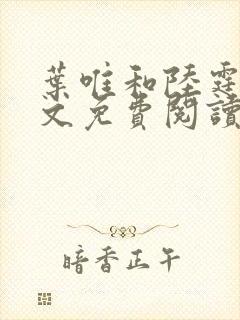 葉唯和陸霆
文免費閱讀
暗香正午